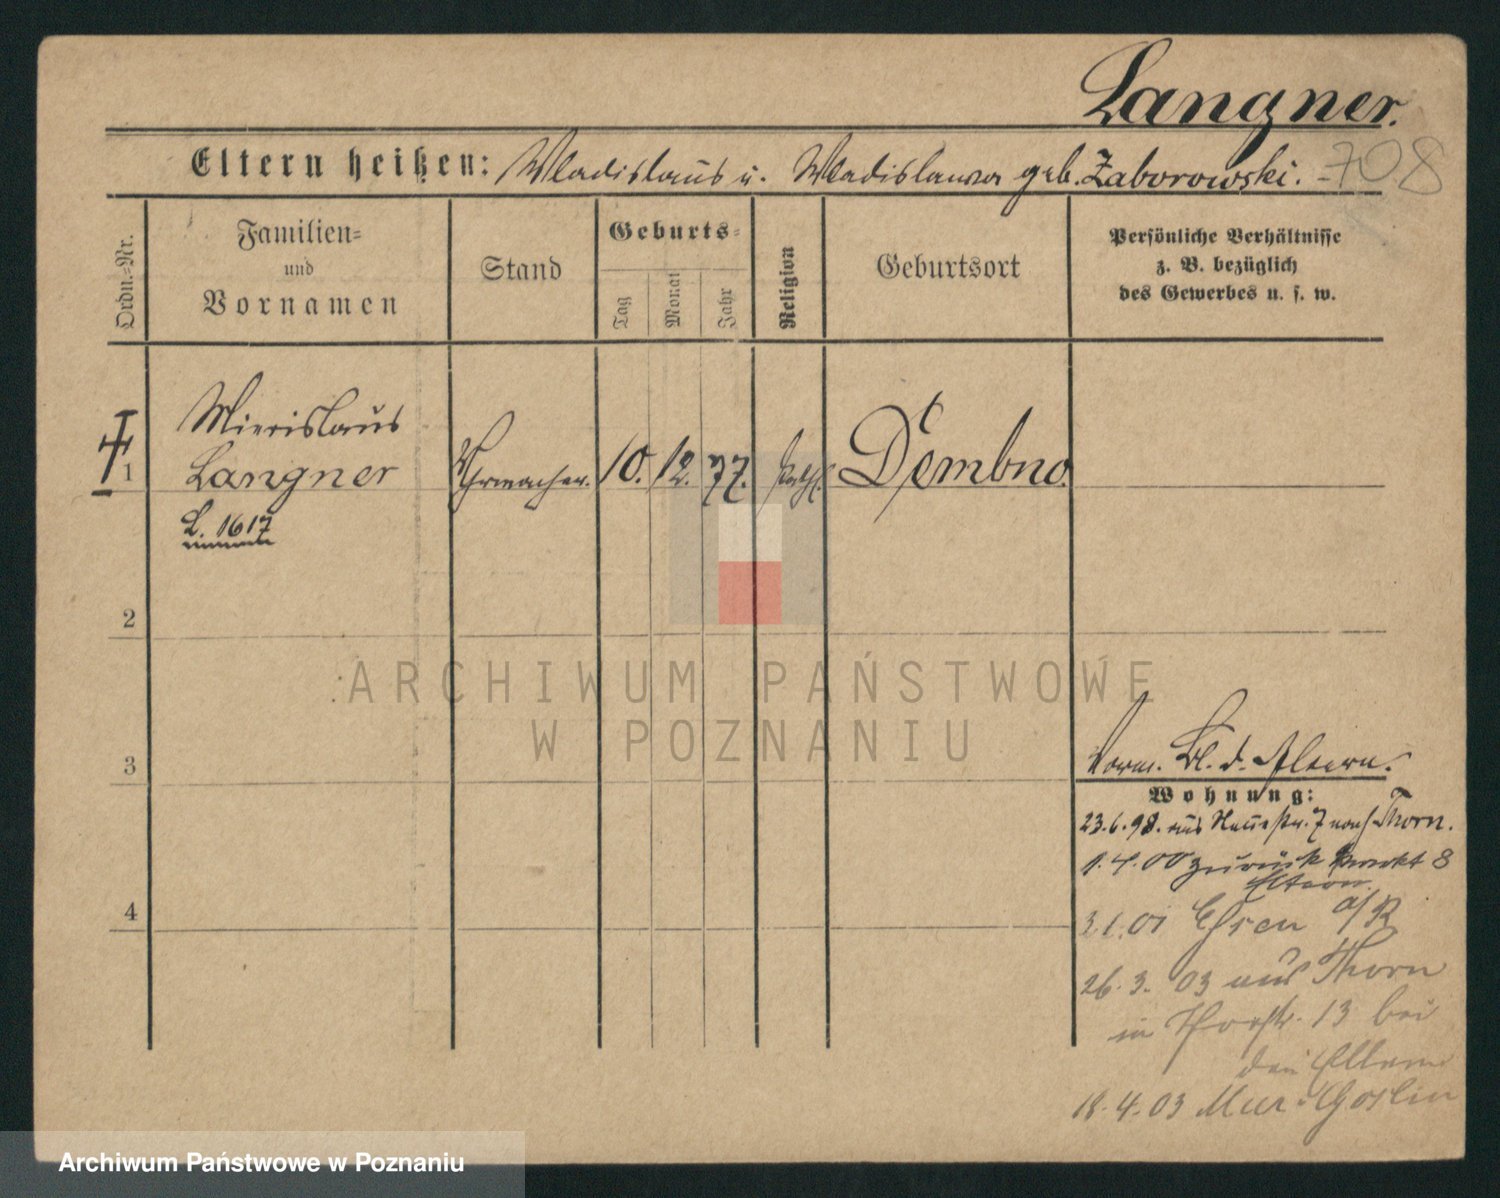 Langner.
Eltern heißen: Wladislaus u. Wladislawa geb. Zaborowski.
708
Ordn.-Nr.
Familien-
und
Vornamen
Stand
Geburts-
Tag
Monat
Jahr
Religion
Geburtsort
Persönliche Verhältnisse
z. B. bezüglich
des Gewerbes u. s. w.
1
Mierislaus
Langner
Uhrmacher. 10. 12. 77. kath. Dembno.
L. 1617
2
ARCHIWUM PAŃSTWOWE
W POZNANIU
3
vorm. Bl. d. Eltern.
Wohnung:
23.6.98. aus Neuestr. 7 nach Thorn.
1.4.00 zurück Markt 8
Eltern.
3 1.01 Essen a/R
26.3.03 aus Thorn
4
in 13 bei
den Eltern
18.4.03 Mur. Goslin
Archiwum Państwowe w Poznaniu